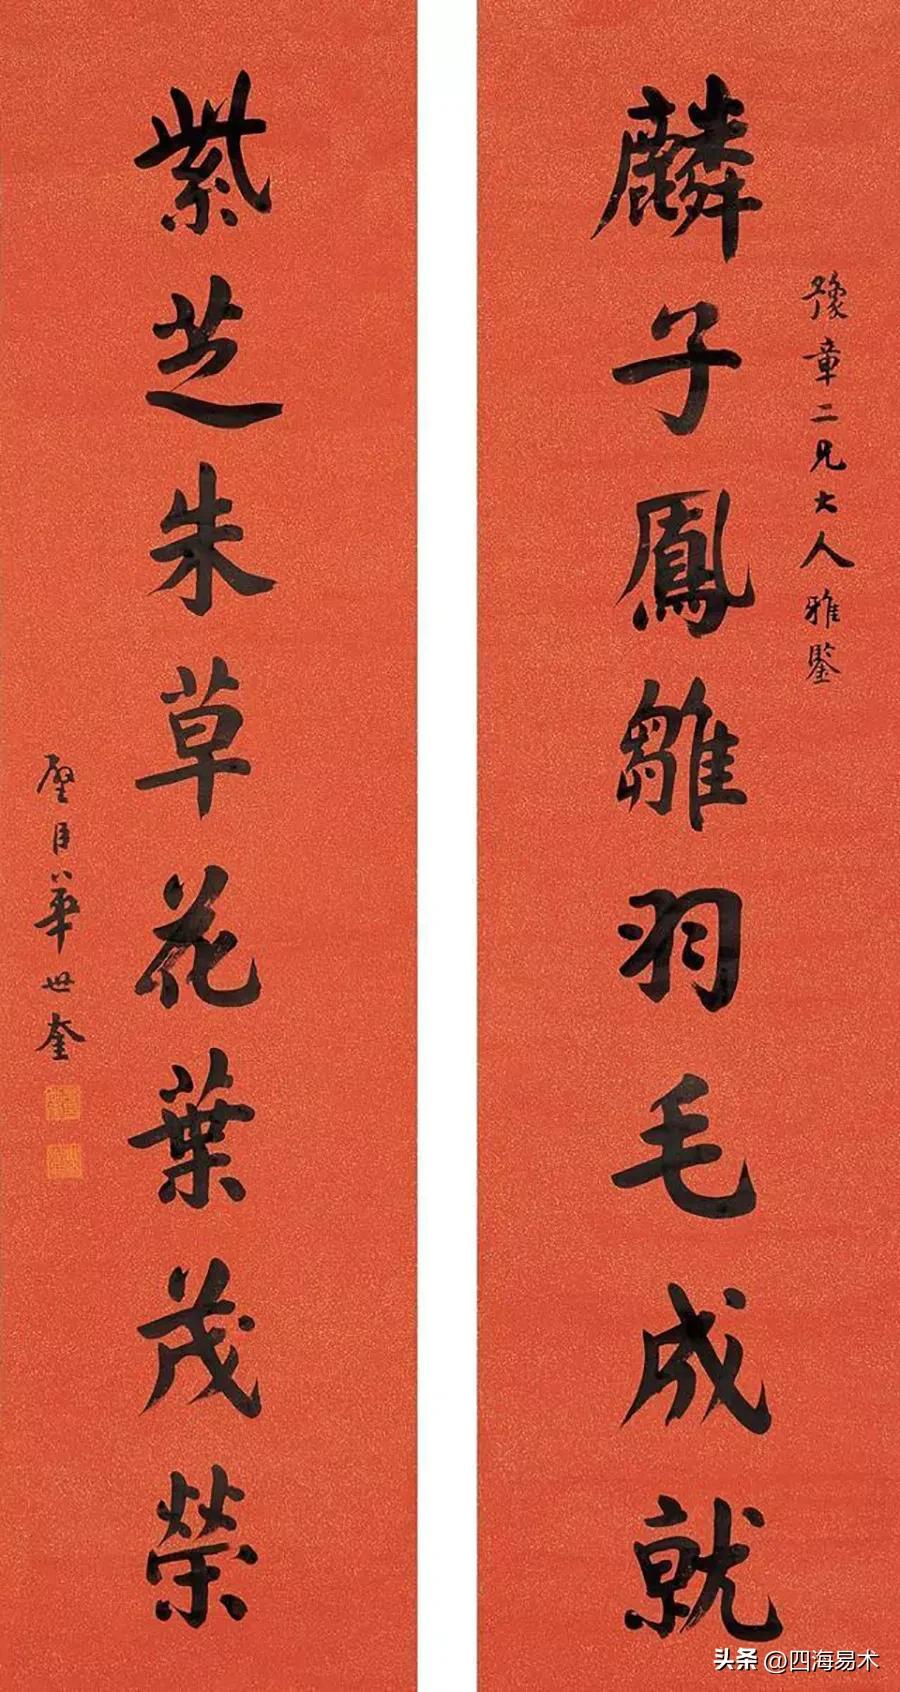 豫章二兄大人雅鑒
麟子鳳雛羽毛成就
紫芝朱草花葉茂榮
璧臣華世奎
头条 @四海易术